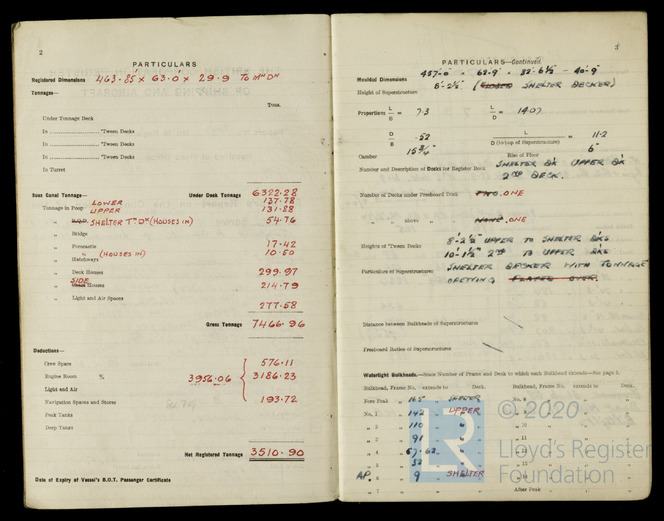 2
PARTICULARS
Registered Dimensions 463.85 x 63.0 x 29.9 To Mn Dk
Tonnages—
Tons.
Under Tonnage Deck
In ........................ 'Tween Decks
In ........................ 'Tween Decks
In ........................ 'Tween Decks
In Turret
Suez Canal Tonnage— Under Deck Tonnage 6322.28
LOWER 137.78
Tonnage in Poop UPPER 131.88
" SHELTER Tn Dk (HOUSES IN) 54.76
" Bridge
" Forecastle 17.42
" (HOUSES IN) 10.50
" Hatchways
" Deck Houses 299.97
" SIDE Houses 214.79
" Light and Air Spaces
277.58
Gross Tonnage 7466.96
Deductions—
Crew Space 576.11
Engine Room % 3956.06 3186.23
Light and Air
Navigation Spaces and Stores 193.72
Peak Tanks
Deep Tanks
Net Registered Tonnage 3510.90
Date of Expiry of Vessel's B.O.T. Passenger Certificate
3
PARTICULARS—Continued.
Moulded Dimensions 457'-0" x 62'.9" x 32'-6½" - 40'-9"
Height of Superstructure 8'-2½" (CLOSED SHELTER DECKER)
Proportions L/B = 7.3 L/D = 14.07
D/B .52 L/D (to top of Superstructure) = 11.2
Camber 15¾" Rise of Floor 6"
Number and Description of Decks for Register Book SHELTER DK UPPER DK
2ND DECK.
Number of Decks under Freeboard Deck TWO. ONE
" " above " NONE. ONE
Heights of 'Tween Decks 8'-2½" UPPER TO SHELTER DKS
10'-1½" 2ND TO UPPER DK
Particulars of Superstructures SHELTER DECKER WITH TONNAGE
OPENING PLATED OVER.
Distance between Bulkheads of Superstructures
Freeboard Ratios of Superstructures
Watertight Bulkheads.—State Number of Frame and Deck to which each Bulkhead extends—See page 5.
Bulkhead, Frame No. extends to Deck. Bulkhead, Frame No. extends to Deck.
Fore Peak 165 SHELTER " No. 8
No. 1 142 UPPER " 9
" 2 110 " " 10
" 3 91 " 11
" 4 67.62 " 12
" 5 32
AP. " 6 9 SHELTER
" 7 After Peak
© 2020
LR
Lloyd's Register
Foundation